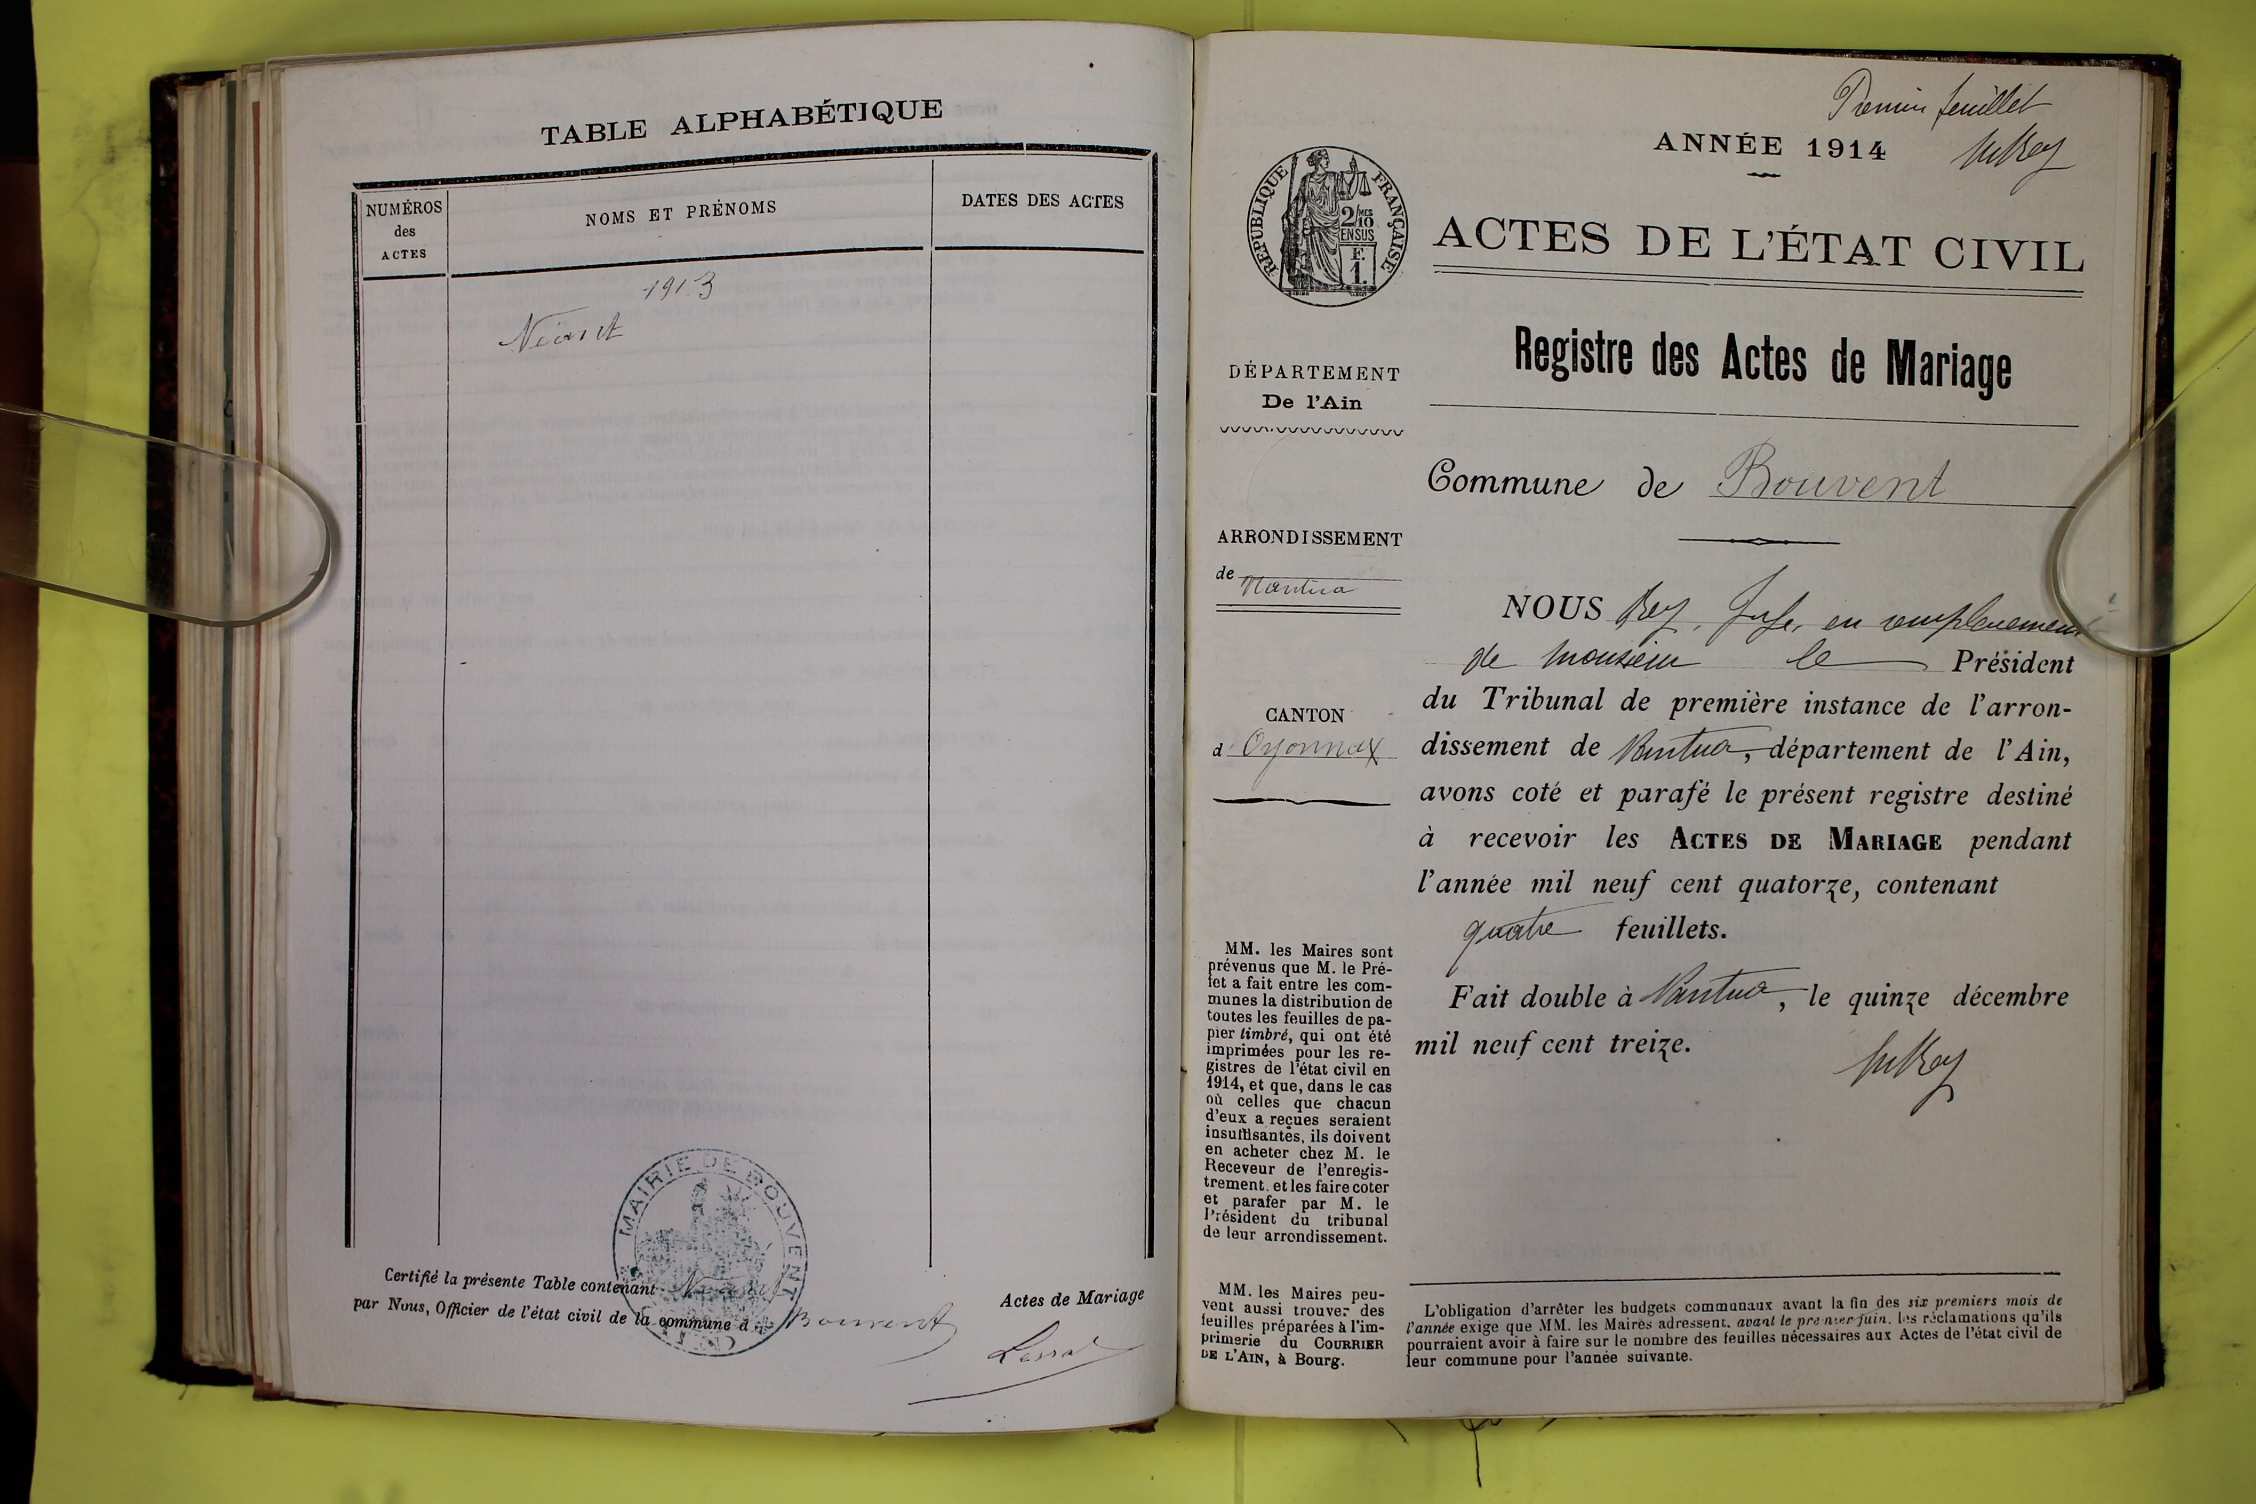 TABLE ALPHABÉTIQUE
NUMÉROS
des
ACTES
NOMS ET PRÉNOMS
DATES DES ACTES
1913
Néant
MAIRIE DE BOUVENT
Certifié la présente Table contenant
Actes de Mariage
par Nous, Officier de l'état civil de la commune d Bouvent
Premier feuillet
ANNÉE 1914
RÉPUBLIQUE FRANÇAISE
2/10 MES
EN SUS
F.
1.
ACTES DE L'ÉTAT CIVIL
Registre des Actes de Mariage
DÉPARTEMENT
De l'Ain
Commune de Bouvent
ARRONDISSEMENT
de Nantua
CANTON
d' Oyonnax
NOUS Rey, Juge, en remplacement
de Monsieur le Président
du Tribunal de première instance de l'arron-
dissement de Nantua, département de l'Ain,
avons coté et parafé le présent registre destiné
à recevoir les ACTES DE MARIAGE pendant
l'année mil neuf cent quatorze, contenant
quatre feuillets.
Fait double à Nantua, le quinze décembre
mil neuf cent treize.
MM. les Maires sont
prévenus que M. le Pré-
fet a fait entre les com-
munes la distribution de
toutes les feuilles de pa-
pier timbré, qui ont été
imprimées pour les re-
gistres de l'état civil en
1914, et que, dans le cas
où celles que chacun
d'eux a reçues seraient
insuffisantes, ils doivent
en acheter chez M. le
Receveur de l'enregis-
trement, et les faire coter
et parafer par M. le
Président du tribunal
de leur arrondissement.
MM. les Maires peu-
vent aussi trouver des
feuilles préparées à l'im-
primerie du COURRIER
DE L'AIN, à Bourg.
L'obligation d'arrêter les budgets communaux avant la fin des six premiers mois de
l'année exige que MM. les Maires adressent, avant le premier juin, les réclamations qu'ils
pourraient avoir à faire sur le nombre des feuilles nécessaires aux Actes de l'état civil de
leur commune pour l'année suivante.